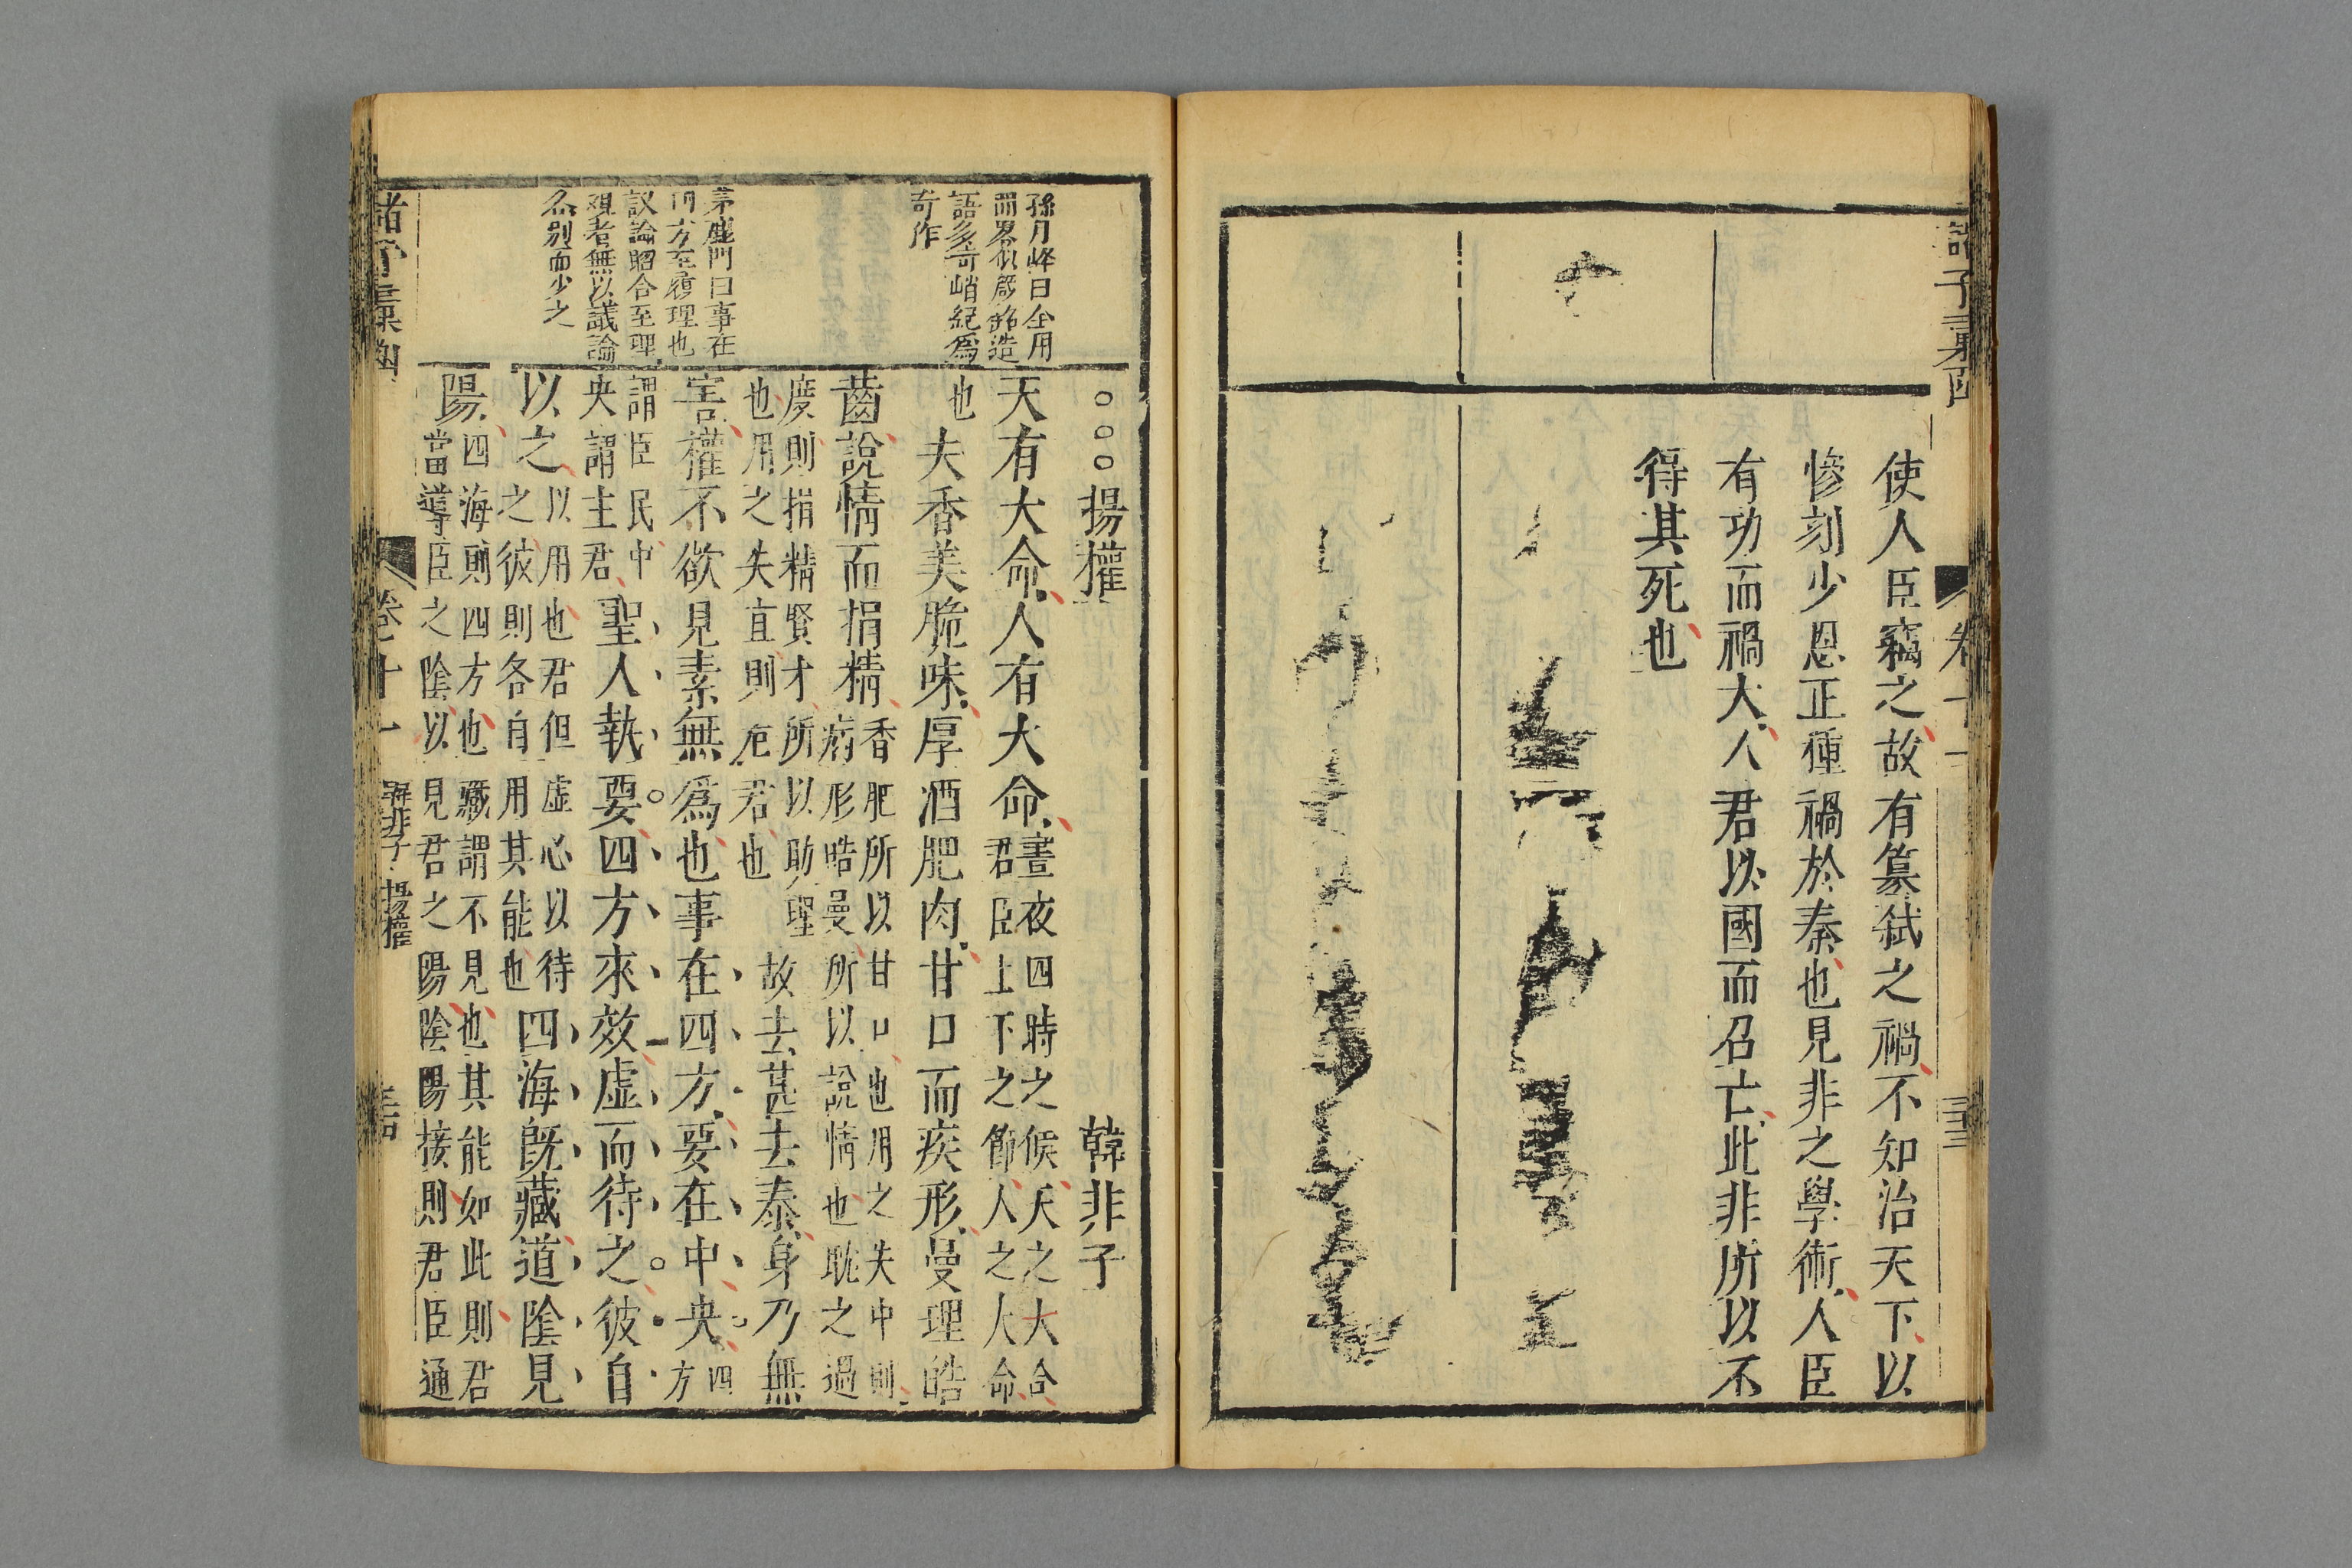 使人臣竊之故有篡弒之禍不知治天下以
慘刻少恩正種禍於秦也見非之學術人臣
有功而禍大人君以國而召亡此非所以不
得其死也
孫月峰曰全用
而畧似箴銘造
語多奇峭絕爲
奇作
茅鹿門曰事在
四方至復理也
議論昭合至理
觀者無以議論
名別而少之
○○○揚權 韓非子
天有大命人有大命晝夜四時之候天之大命
君臣上下之節人之大命
也夫香美脆味厚酒肥肉甘口而疾形曼理皓
齒說情而捐精香肥所以甘口也用之失中則
病形皓曼所以說情也耽之過
度則捐精賢才所以助聖
也用之失直則危君也故去甚去泰身乃無
害權不欲見素無爲也事在四方要在中央四
方
謂臣民中
央謂主君聖人執要四方來效虛而待之彼自
以之以用也君但虛心以待
之彼則各自用其能也四海既藏道陰見
陽四海則四方也藏謂不見也其能如此則君
當導臣之陰以見君之陽陰陽接則君臣通
卷十一 韓非子 揚權